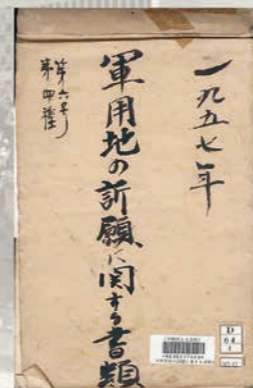 一九五七年
軍用地の訴願に関する書類
第六号
第四種
D
04